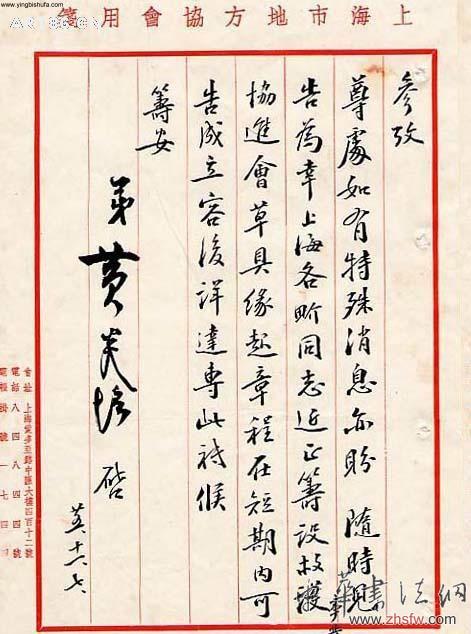 www.yingbishufa.com
上海市地方協會用箋
參攷
尊處如有特殊消息亦盼 隨時見
告為幸上海各界同志近正籌設救護
協進會草具緣起章程在短期內可
告成立容後詳達專此祗候
籌安
弟黃炎培 啓
會址 上海愛多亞路中匯大樓四百十二號
電話 八四八四四號
電報掛號 一七四
書法網
www.zhsfw.com